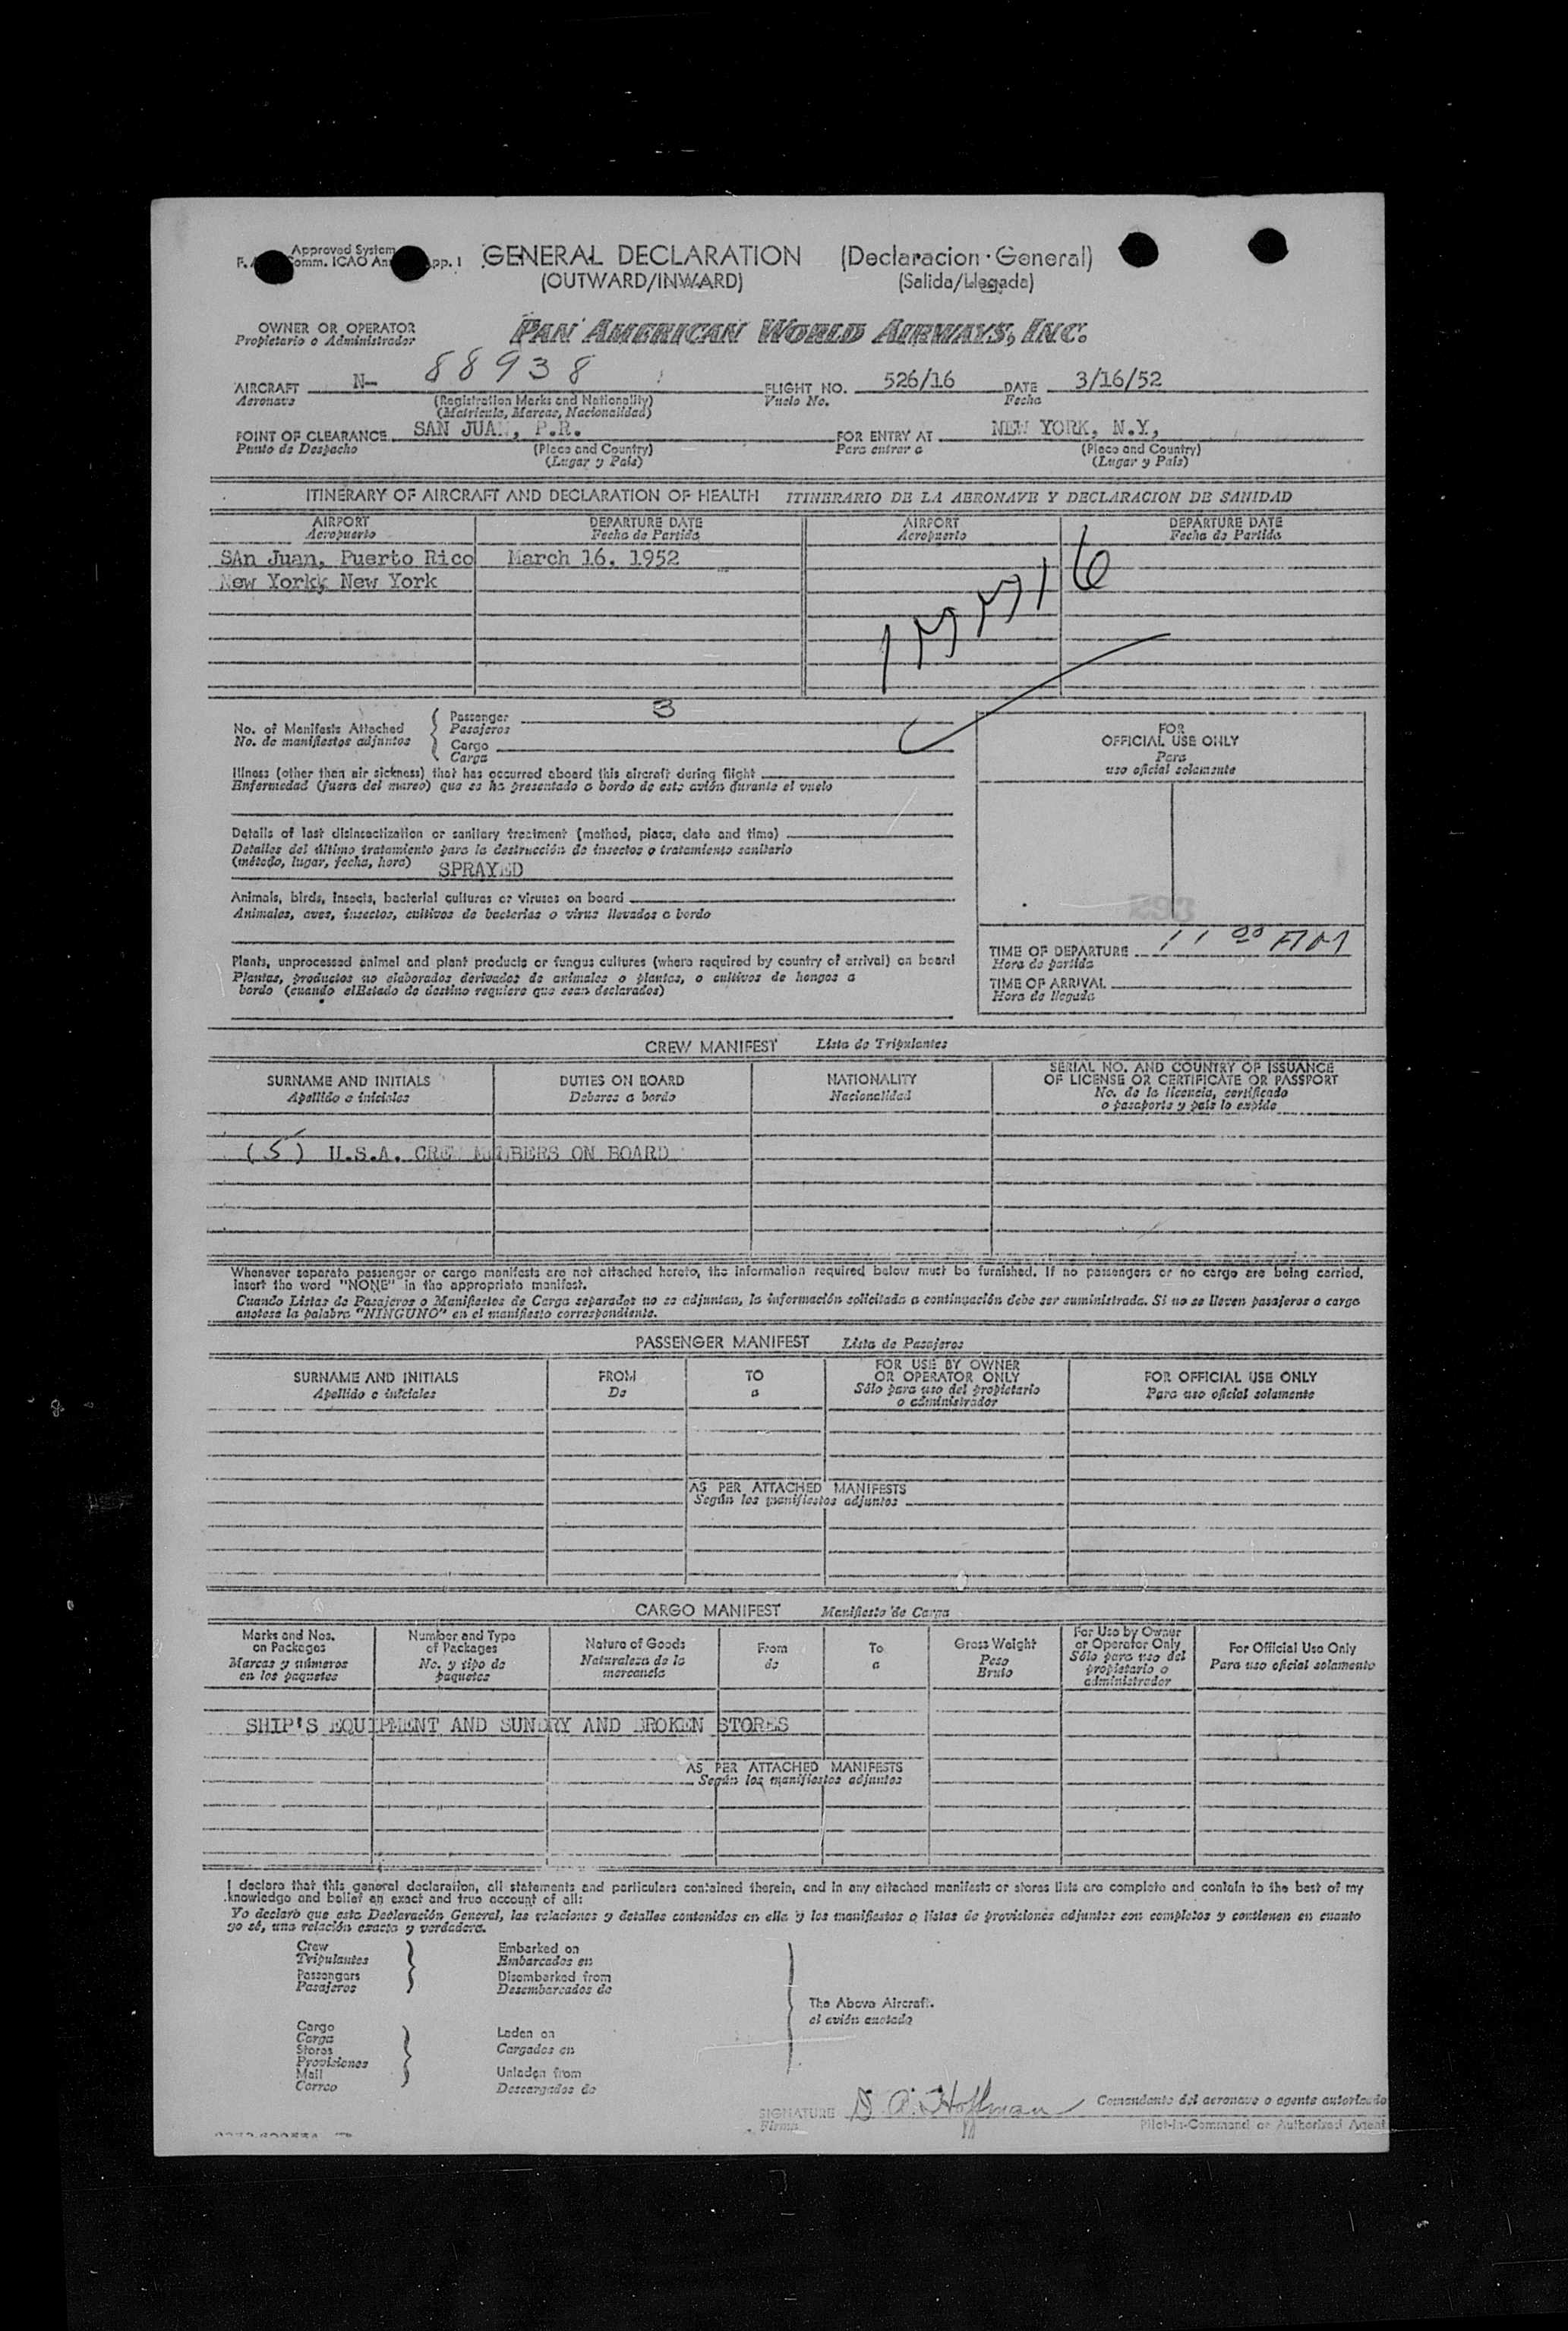 Approved System
GENERAL DECLARATION (Declaracion General)
(OUTWARD/INWARD) (Salida/Llegada)
OWNER OR OPERATOR PAN AMERICAN WORLD AIRWAYS, INC.
Propietario o Administrador
AIRCRAFT N- 88938 FLIGHT NO. 526/16 DATE 3/16/52
Aeronave (Registration Marks and Nationality) Vuelo No. Fecha
(Matricula, Marcas, Nacionalidad)
POINT OF CLEARANCE SAN JUAN, P.R. FOR ENTRY AT NEW YORK, N.Y,
Punto de Despacho (Place and Country) Para entrar a (Place and Country)
(Lugar y País) (Lugar y País)
ITINERARY OF AIRCRAFT AND DECLARATION OF HEALTH ITINERARIO DE LA AERONAVE Y DECLARACION DE SANIDAD
AIRPORT DEPARTURE DATE AIRPORT DEPARTURE DATE
Aeropuerto Fecha de Partida Aeropuerto Fecha de Partida
SAn Juan, Puerto Rico March 16, 1952
New York, New York
No. of Manifests Attached
No. de manifiestos adjuntos
Passenger 3
Pasajeros
Cargo
Carga
FOR
OFFICIAL USE ONLY
Para
uso oficial solamente
Illness (other than air sickness) that has occurred aboard this aircraft during flight
Enfermedad (fuera del mareo) que se ha presentado a bordo de este avión durante el vuelo
Details of last disinsectization or sanitary treatment (method, place, date and time)
Detalles del último tratamiento para la destrucción de insectos o tratamiento sanitario
(método, lugar, fecha, hora) SPRAYED
Animals, birds, insects, bacterial cultures or viruses on board
Animales, aves, insectos, cultivos de bacterias o virus llevados a bordo
293
Plants, unprocessed animal and plant products or fungus cultures (where required by country of arrival) on board
Plantas, productos no elaborados derivados de animales o plantas, o cultivos de hongos a
bordo (cuando elEstado de destino requiere que sean declarados)
TIME OF DEPARTURE 11 00 AM
Hora de partida
TIME OF ARRIVAL
Hora de llegada
CREW MANIFEST Lista de Tripulantes
SURNAME AND INITIALS DUTIES ON BOARD NATIONALITY SERIAL NO. AND COUNTRY OF ISSUANCE
OF LICENSE OR CERTIFICATE OR PASSPORT
Apellido e iniciales Deberes a bordo Nacionalidad No. de la licencia, certificado
o pasaporte y país lo expide
(5) U.S.A. CREW MEMBERS ON BOARD
Whenever separate passenger or cargo manifests are not attached hereto, the information required below must be furnished. If no passengers or no cargo are being carried,
insert the word "NONE" in the appropriate manifest.
Cuando Listas de Pasajeros o Manifiestos de Carga separados no se adjuntan, la información solicitada a continuación debe ser suministrada. Si no se lleven pasajeros o carga
anotese la palabra "NINGUNO" en el manifiesto correspondiente.
PASSENGER MANIFEST Lista de Pasajeros
SURNAME AND INITIALS FROM TO FOR USE BY OWNER
OR OPERATOR ONLY FOR OFFICIAL USE ONLY
Apellido e iniciales De a Sólo para uso del propietario
o administrador Para uso oficial solamente
AS PER ATTACHED MANIFESTS
Según los manifiestos adjuntos
CARGO MANIFEST Manifiesto de Carga
Marks and Nos.
on Packages
Marcas y números
en los paquetes
Number and Type
of Packages
No. y tipo de
paquetes
Nature of Goods
Naturaleza de la
mercancia
From
de
To
a
Gross Weight
Peso
Bruto
For Use by Owner
or Operator Only
Sólo para uso del
propietario o
administrador
For Official Use Only
Para uso oficial solamente
SHIP'S EQUIPMENT AND SUNDRY AND BROKEN STORES
AS PER ATTACHED MANIFESTS
Según los manifiestos adjuntos
I declare that this general declaration, all statements and particulars contained therein, and in any attached manifests or stores lists are complete and contain to the best of my
knowledge and belief an exact and true account of all:
Yo declaro que esta Declaración General, las relaciones y detalles contenidos en ella y los manifiestos o listas de provisiones adjuntos son completos y contienen en cuanto
yo sé, una relación exacta y verdadera.
Crew
Tripulantes
Passengers
Pasajeros
Embarked on
Embarcados en
Disembarked from
Desembarcados de
The Above Aircraft.
el avión anotado
Cargo
Carga
Stores
Provisiones
Mail
Correo
Laden on
Cargados en
Unladen from
Descargados de
SIGNATURE D. A. Hoffman Comandante del aeronave o agente autorizado
Firma Pilot-in-Command or Authorized Agent